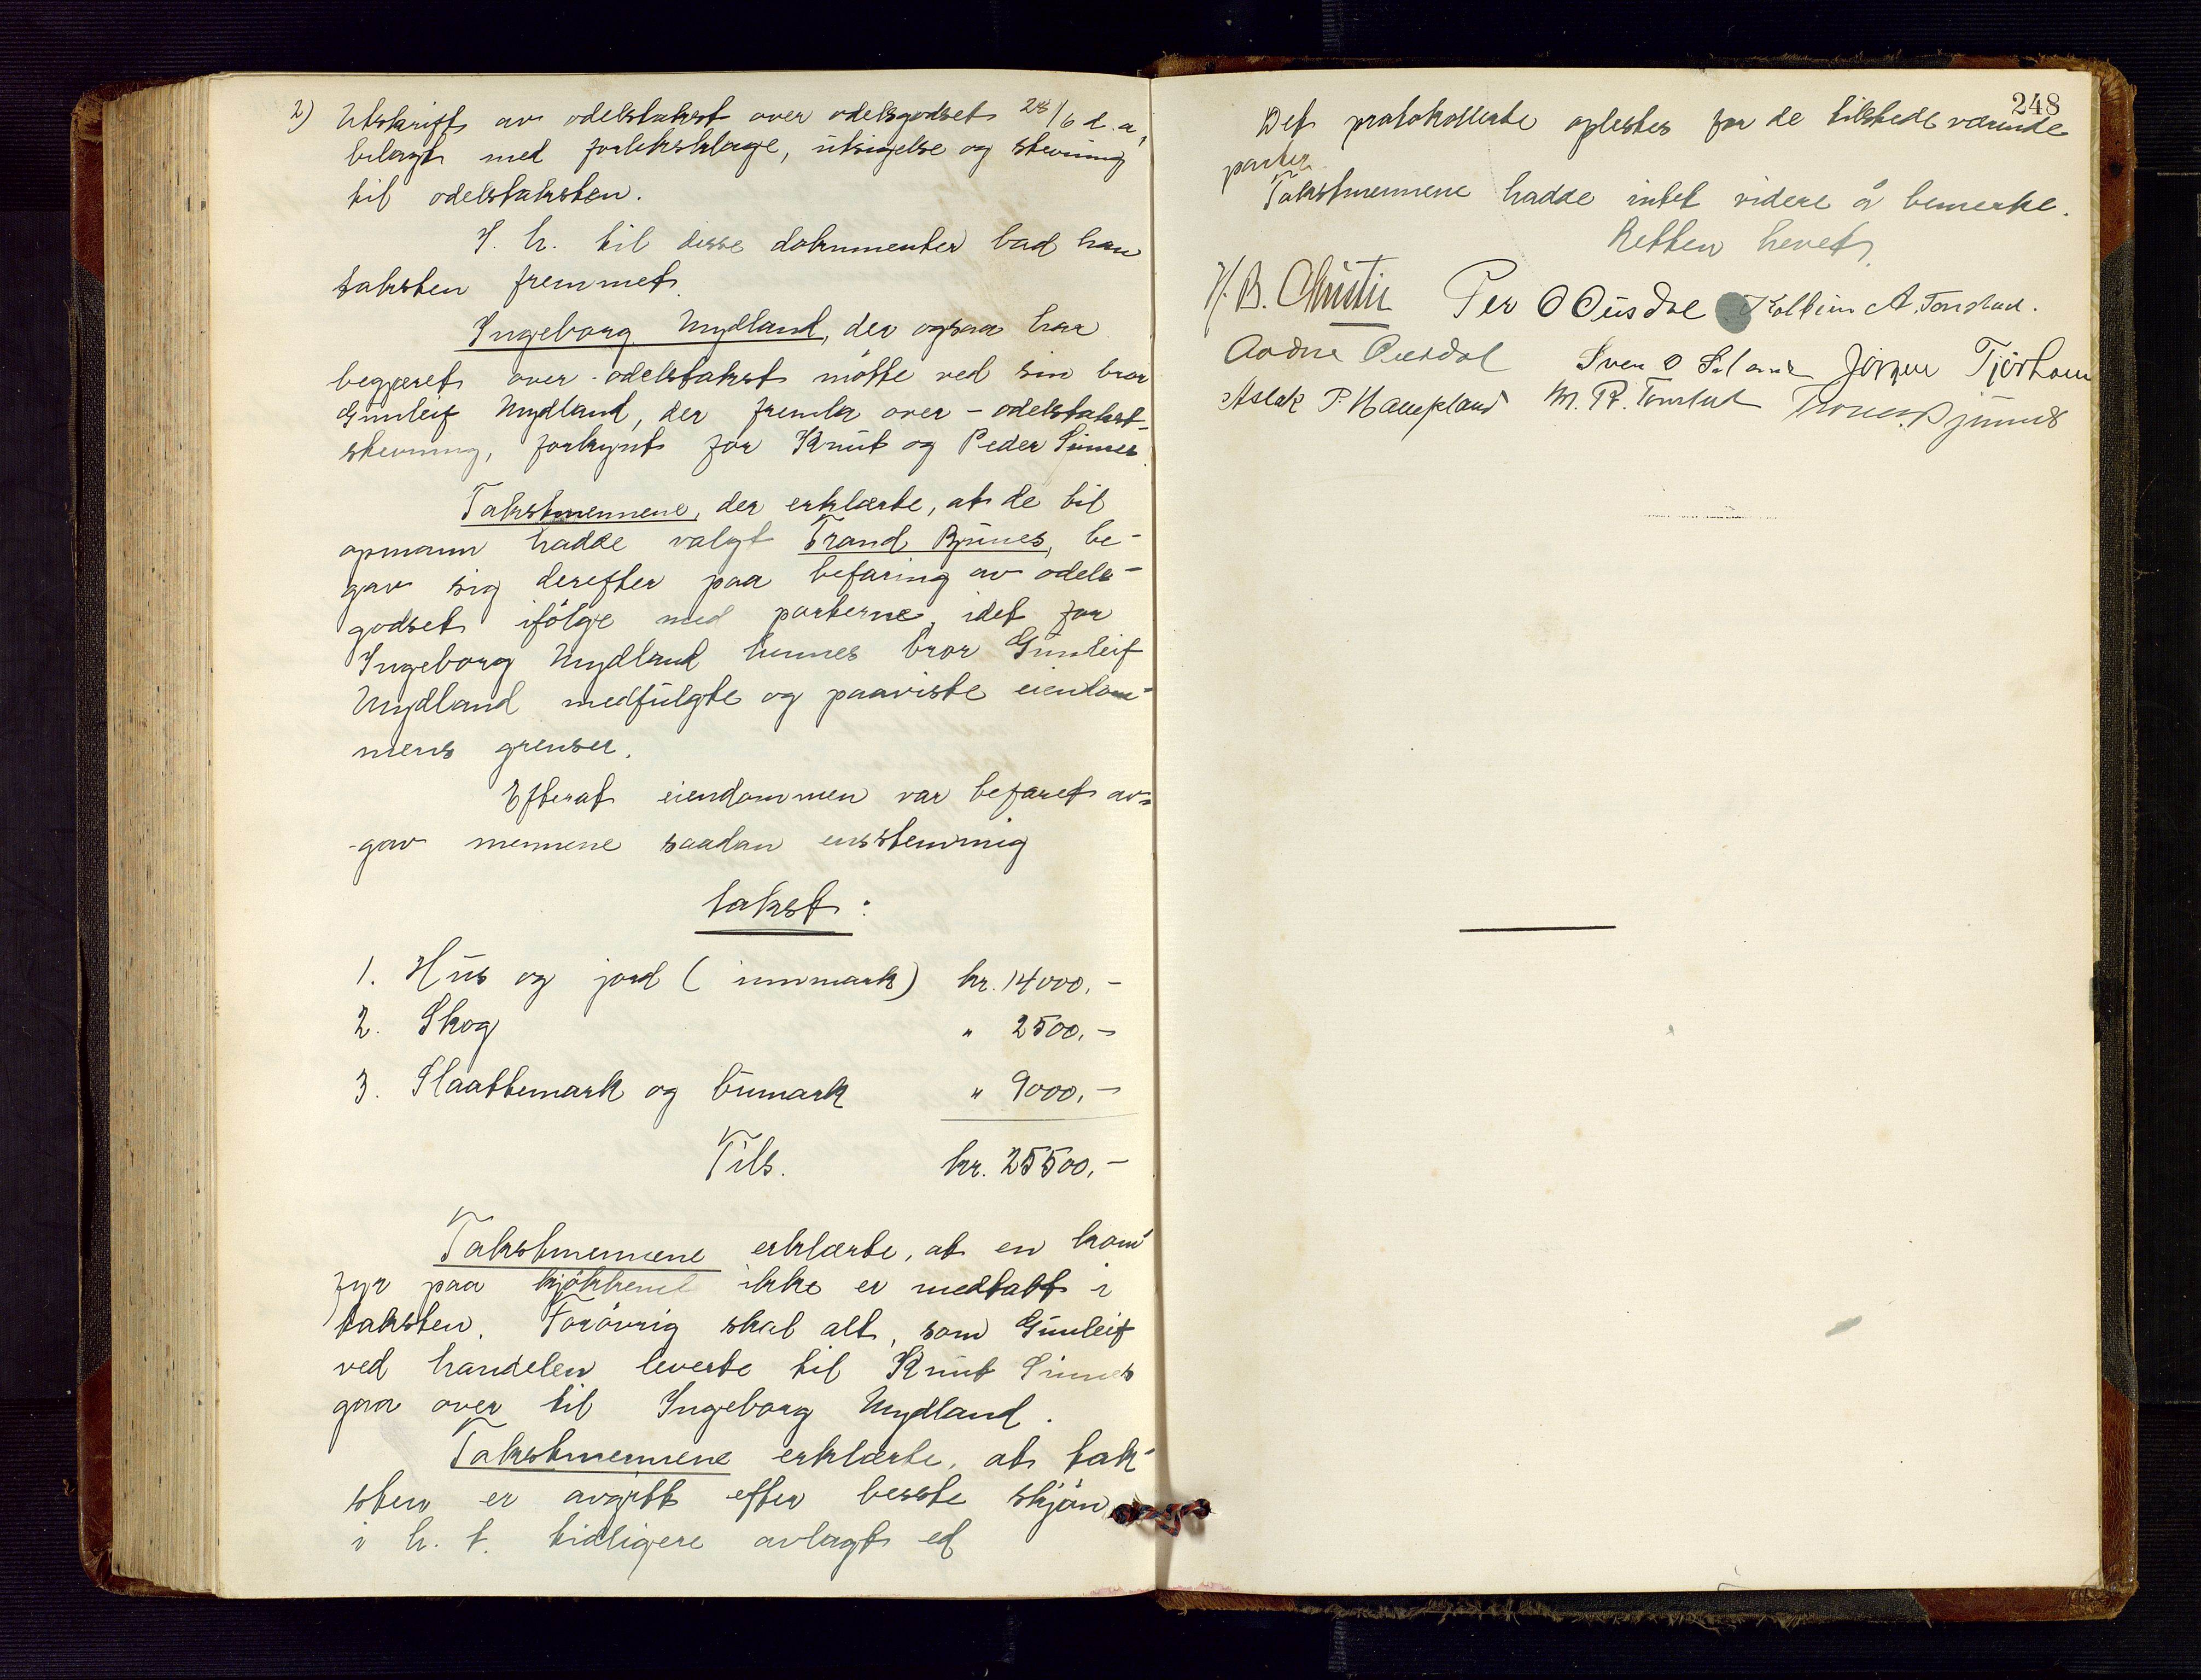 2) Utskrift av odelstakst over odelsgodset 28/6 d. a,
bilagt med forliksklage, utsigelse og stevning
til odelstaksten.
I. h. til disse dokumenter bad han
taksten fremmet.
Ingeborg Mydland, der ogsaa har
begjæret over-odelstakst møtte ved sin bror
Gunleif Mydland, der fremla over-odelstakst-
stevning, forkynt for Knut og Peder Sinnes
Takstmennene, der erklærte, at de til
opmann hadde valgt Trond Bjunes, be-
gav sig derefter paa befaring av odels-
godset ifölge med parterne idet for
Ingeborg Mydland hennes bror Gunleif
Mydland medfulgte og paaviste eiendom-
mens grenser.
Efterat eiendommen var befaret av-
-gav mennene saadan enstemmig
takst:
1. Hus og jord (innmark) kr. 14000,-
2. Skog " 2500,-
3. Slaattemark og bumark " 9000,-
Tils. kr. 25500,-
Takstmennene erklærte, at en kom-
fyr paa kjökkenet ikke er medtatt i
taksten. Forövrig skal alt, som Gunleif
ved handelen leverte til Knut Sinnes
gaa over til Ingeborg Mydland.
Takstmennene erklærte, at tak-
sten er avgitt efter beste skjön
i h. t. tidligere avlagt ed
248
Det protokollerte oplestes for de tilstedeværende
parter
Takstmennene hadde intet videre å bemerke.
Retten hevet.
H. B. Christie Per O Ousdal Kolbein A. Tonstad.
Aadne Ousdal Sven O Jørgen Tjørhom
Aslak P. Haugland M. R. Tonstad Trond Bjunes